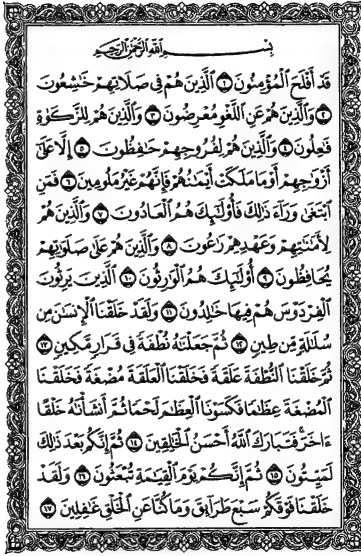 بِسْمِ اللَّهِ الرَّحْمَٰنِ الرَّحِيمِ
قَدْ أَفْلَحَ الْمُؤْمِنُونَ ١ الَّذِينَ هُمْ فِي صَلَاتِهِمْ خَاشِعُونَ
٢ وَالَّذِينَ هُمْ عَنِ اللَّغْوِ مُعْرِضُونَ ٣ وَالَّذِينَ هُمْ لِلزَّكَوٰةِ
فَٰعِلُونَ ٤ وَالَّذِينَ هُمْ لِفُرُوجِهِمْ حَٰفِظُونَ ٥ إِلَّا عَلَىٰ
أَزْوَٰجِهِمْ أَوْ مَا مَلَكَتْ أَيْمَٰنُهُمْ فَإِنَّهُمْ غَيْرُ مَلُومِينَ ٦ فَمَنِ
ابْتَغَىٰ وَرَآءَ ذَٰلِكَ فَأُو۟لَٰٓئِكَ هُمُ الْعَادُونَ ٧ وَالَّذِينَ هُمْ
لِأَمَٰنَٰتِهِمْ وَعَهْدِهِمْ رَٰعُونَ ٨ وَالَّذِينَ هُمْ عَلَىٰ صَلَوَٰتِهِمْ
يُحَافِظُونَ ٩ أُو۟لَٰٓئِكَ هُمُ الْوَٰرِثُونَ ١٠ الَّذِينَ يَرِثُونَ
الْفِرْدَوْسَ هُمْ فِيهَا خَٰلِدُونَ ١١ وَلَقَدْ خَلَقْنَا الْإِنسَٰنَ مِن
سُلَٰلَةٍ مِّن طِينٍ ١٢ ثُمَّ جَعَلْنَٰهُ نُطْفَةً فِي قَرَارٍ مَّكِينٍ ١٣
ثُمَّ خَلَقْنَا النُّطْفَةَ عَلَقَةً فَخَلَقْنَا الْعَلَقَةَ مُضْغَةً فَخَلَقْنَا
الْمُضْغَةَ عِظَٰمًا فَكَسَوْنَا الْعِظَٰمَ لَحْمًا ثُمَّ أَنشَأْنَٰهُ خَلْقًا
ءَاخَرَ فَتَبَارَكَ اللَّهُ أَحْسَنُ الْخَٰلِقِينَ ١٤ ثُمَّ إِنَّكُم بَعْدَ ذَٰلِكَ
لَمَيِّتُونَ ١٥ ثُمَّ إِنَّكُمْ يَوْمَ الْقِيَٰمَةِ تُبْعَثُونَ ١٦ وَلَقَدْ
خَلَقْنَا فَوْقَكُمْ سَبْعَ طَرَآئِقَ وَمَا كُنَّا عَنِ الْخَلْقِ غَٰفِلِينَ ١٧